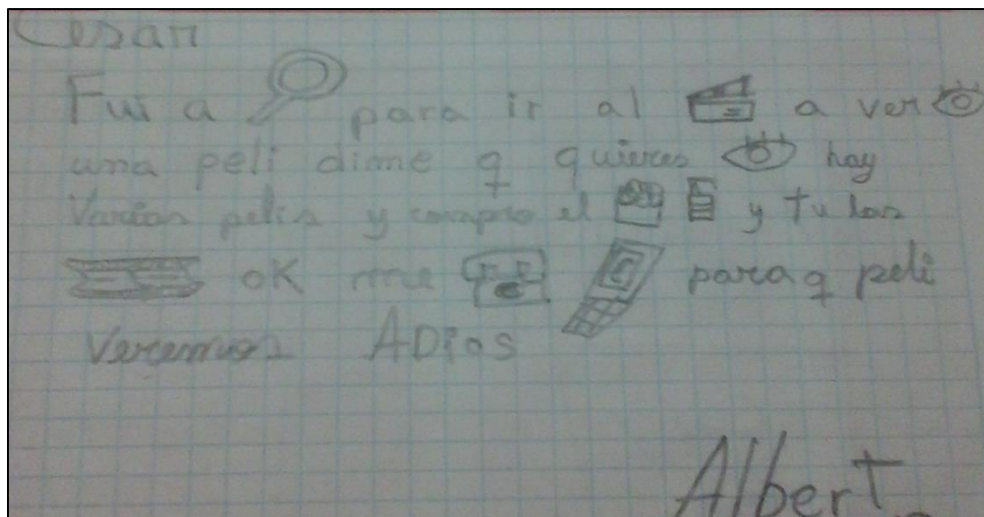 Cesar
Fui a para ir al a ver
una peli dime q quieres hay
Varias pelis y compro el y tu las
OK me para q peli
Veremos ADios
Albert